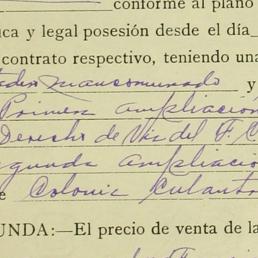 conforme al plano
ca y legal posesión desde el día
contrato respectivo, teniendo una
mancomunado y
Primera ampliación
Derecho de Via del F.C.
segunda ampliació
e Colonia
UNDA:—El precio de venta de la